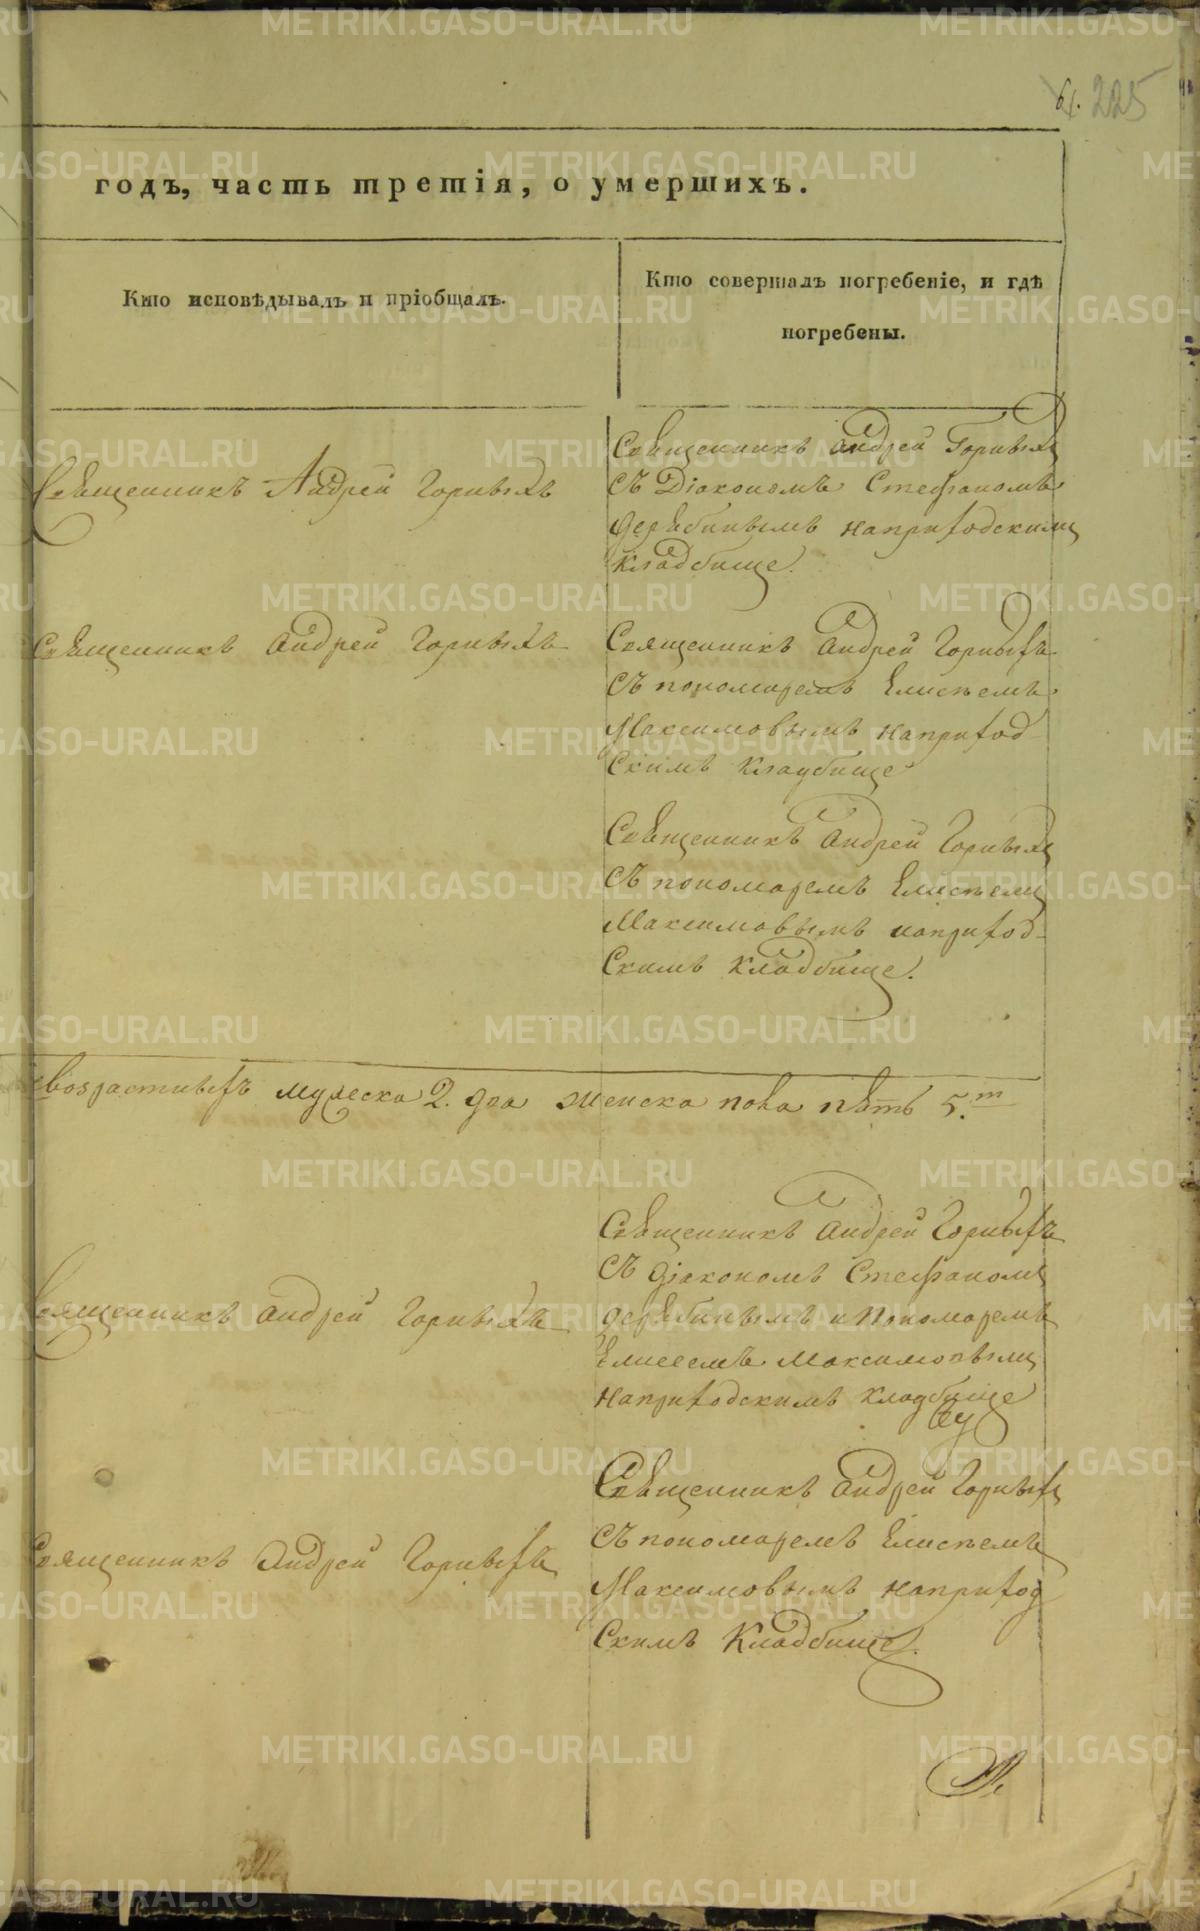 225
годъ, часть третія, о умершихъ.
Кто исповѣдывалъ и пріобщалъ.
Кто совершалъ погребеніе, и гдѣ
погребены.
Священникъ Андрей Горныхъ
Священникъ Андрей Горныхъ
съ Діакономъ Стефаномъ
Дерябинымъ наприходскимъ
кладбище.
Священникъ Андрей Горныхъ
Священникъ Андрей Горныхъ
съ пономаремъ Елисѣемъ
Максимовымъ наприход
скимъ кладбище
Священникъ Андрей Горныхъ
съ пономаремъ Елисѣемъ
Максимовымъ наприход-
скимъ кладбище.
возрастныхъ мужеска 2. два женска пола пять 5.
Священникъ Андрей Горныхъ
Священникъ Андрей Горныхъ
съ діакономъ Стефаномъ
дерябинымъ и Пономаремъ
Елисеемъ Максимовымъ
наприходскимъ кладбище
Священникъ Андрей Горныхъ
Священникъ Андрей Горныхъ
съ пономаремъ Елисѣемъ
Максимовымъ наприход
скимъ Кладбище.
METRIKI.GASO-URAL.RU